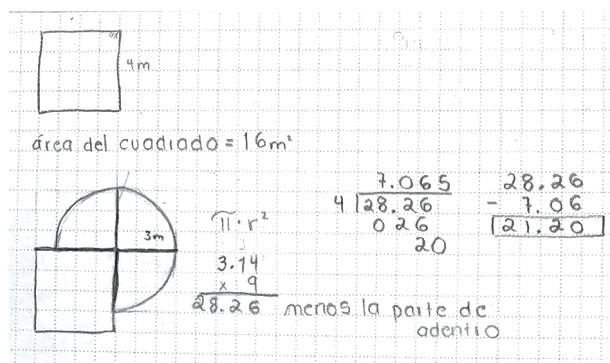 4m
área del cuadrado = 16m²
3m
π · r²
3.14
x 9
28.26 menos la parte de
adentro
7.065
4 28.26
026
20
28.26
- 7.06
21.20